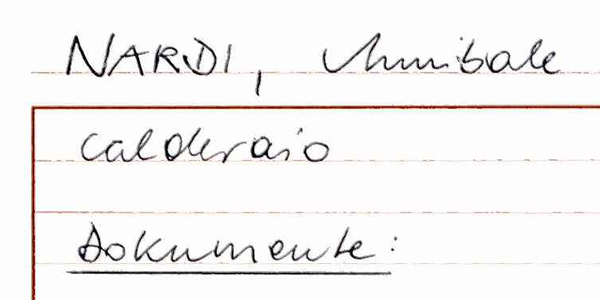 NARDI, Annibale
calderaio
Dokumente: